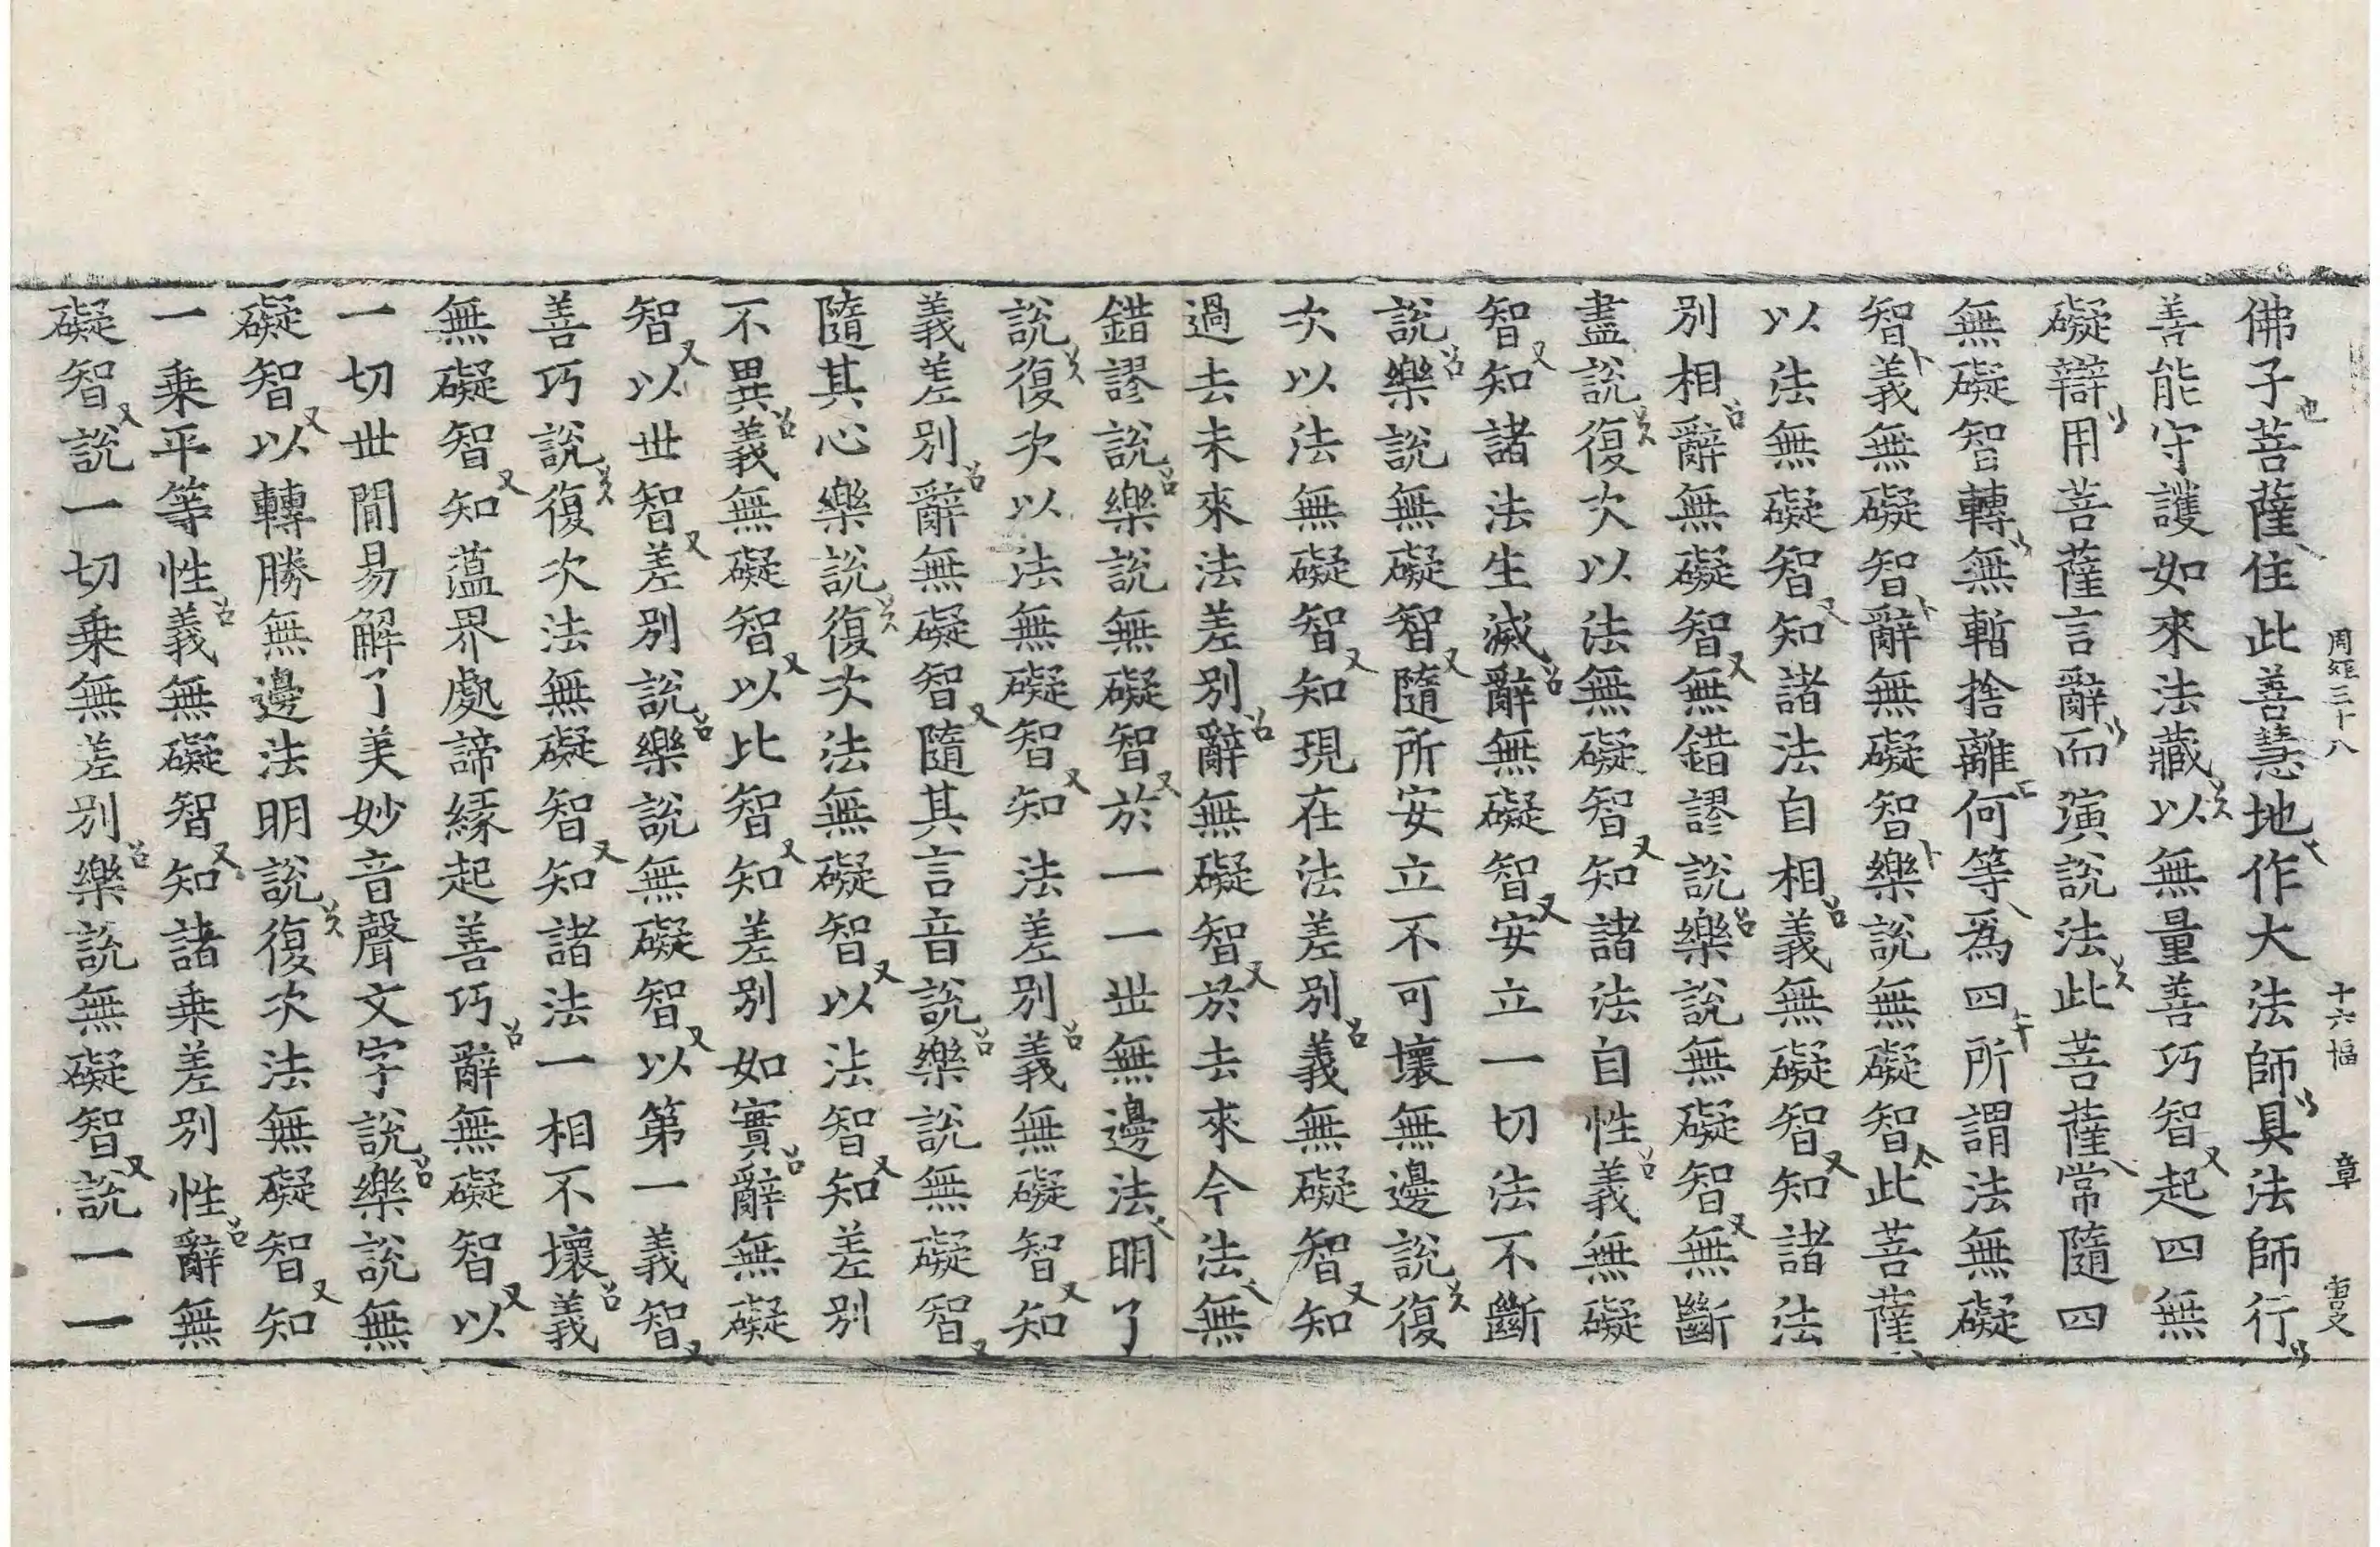 周經三十八 十六幅 章
佛子菩薩住此善慧地作大法師具法師行
善能守護如來法藏以無量善巧智起四無
礙辯用菩薩言辭而演說法此菩薩常隨四
無礙智轉無暫捨離何等為四所謂法無礙
智義無礙智辭無礙智樂說無礙智此菩薩
以法無礙智知諸法自相義無礙智知諸法
別相辭無礙智無錯謬說樂說無礙智無斷
盡說復次以法無礙智知諸法自性義無礙
智知諸法生滅辭無礙智安立一切法不斷
說樂說無礙智隨所安立不可壞無邊說復
次以法無礙智知現在法差別義無礙智知
過去未來法差別辭無礙智於去來今法無
錯謬說樂說無礙智於一一世無邊法明了
說復次以法無礙智知法差別義無礙智知
義差別辭無礙智隨其言音說樂說無礙智
隨其心樂說復次法無礙智以法智知差別
不異義無礙智以比智知差別如實辭無礙
智以世智差別說樂說無礙智以第一義智
善巧說復次法無礙智知諸法一相不壞義
無礙智知蘊界處諦緣起善巧辭無礙智以
一切世間易解了美妙音聲文字說樂說無
礙智以轉勝無邊法明說復次法無礙智知
一乘平等性義無礙智知諸乘差別性辭無
礙智說一切乘無差別樂說無礙智說一一